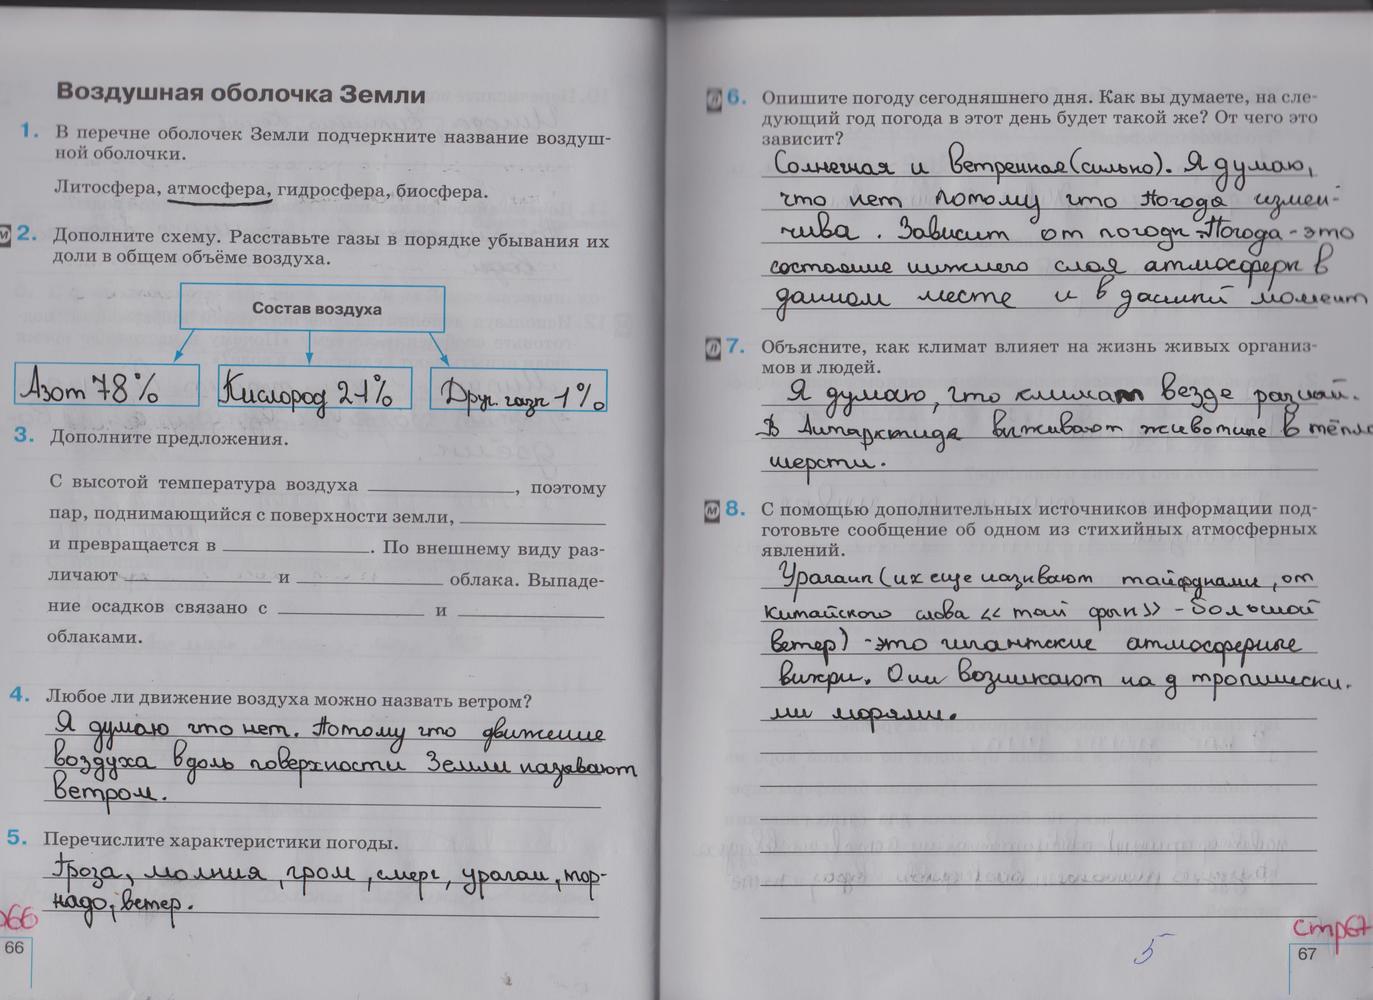 Воздушная оболочка Земли
1. В перечне оболочек Земли подчеркните название воздуш-
ной оболочки.
Литосфера, атмосфера, гидросфера, биосфера.
М 2. Дополните схему. Расставьте газы в порядке убывания их
доли в общем объёме воздуха.
Состав воздуха
Азот 78% Кислород 21% Друг. газы 1%
3. Дополните предложения.
С высотой температура воздуха ________, поэтому
пар, поднимающийся с поверхности земли, ________
и превращается в ________. По внешнему виду раз-
личают ________ и ________ облака. Выпаде-
ние осадков связано с ________ и ________
облаками.
4. Любое ли движение воздуха можно назвать ветром?
Я думаю что нет. Потому что движение
воздуха вдоль поверхности Земли называют
ветром.
5. Перечислите характеристики погоды.
Гроза, молния, гром, смерч, ураган, тор-
надо, ветер.
66
66
Л 6. Опишите погоду сегодняшнего дня. Как вы думаете, на сле-
дующий год погода в этот день будет такой же? От чего это
зависит?
Солнечная и ветренная (сильно). Я думаю,
что нет потому что погода измен-
чива. Зависит от погоды. Погода - это
состояние нижнего слоя атмосферы в
данном месте и в данный момент
Л 7. Объясните, как климат влияет на жизнь живых организ-
мов и людей.
Я думаю, что климат везде разный.
В Антарктида выживают животные в тёпло
шерсти.
М 8. С помощью дополнительных источников информации под-
готовьте сообщение об одном из стихийных атмосферных
явлений.
Ураганы (их еще называют тайфунами, от
китайского слова «тай фын» - большой
ветер) - это гигантские атмосферные
вихри. Они возникают над тропически.
ми морями.
5
стр67
67